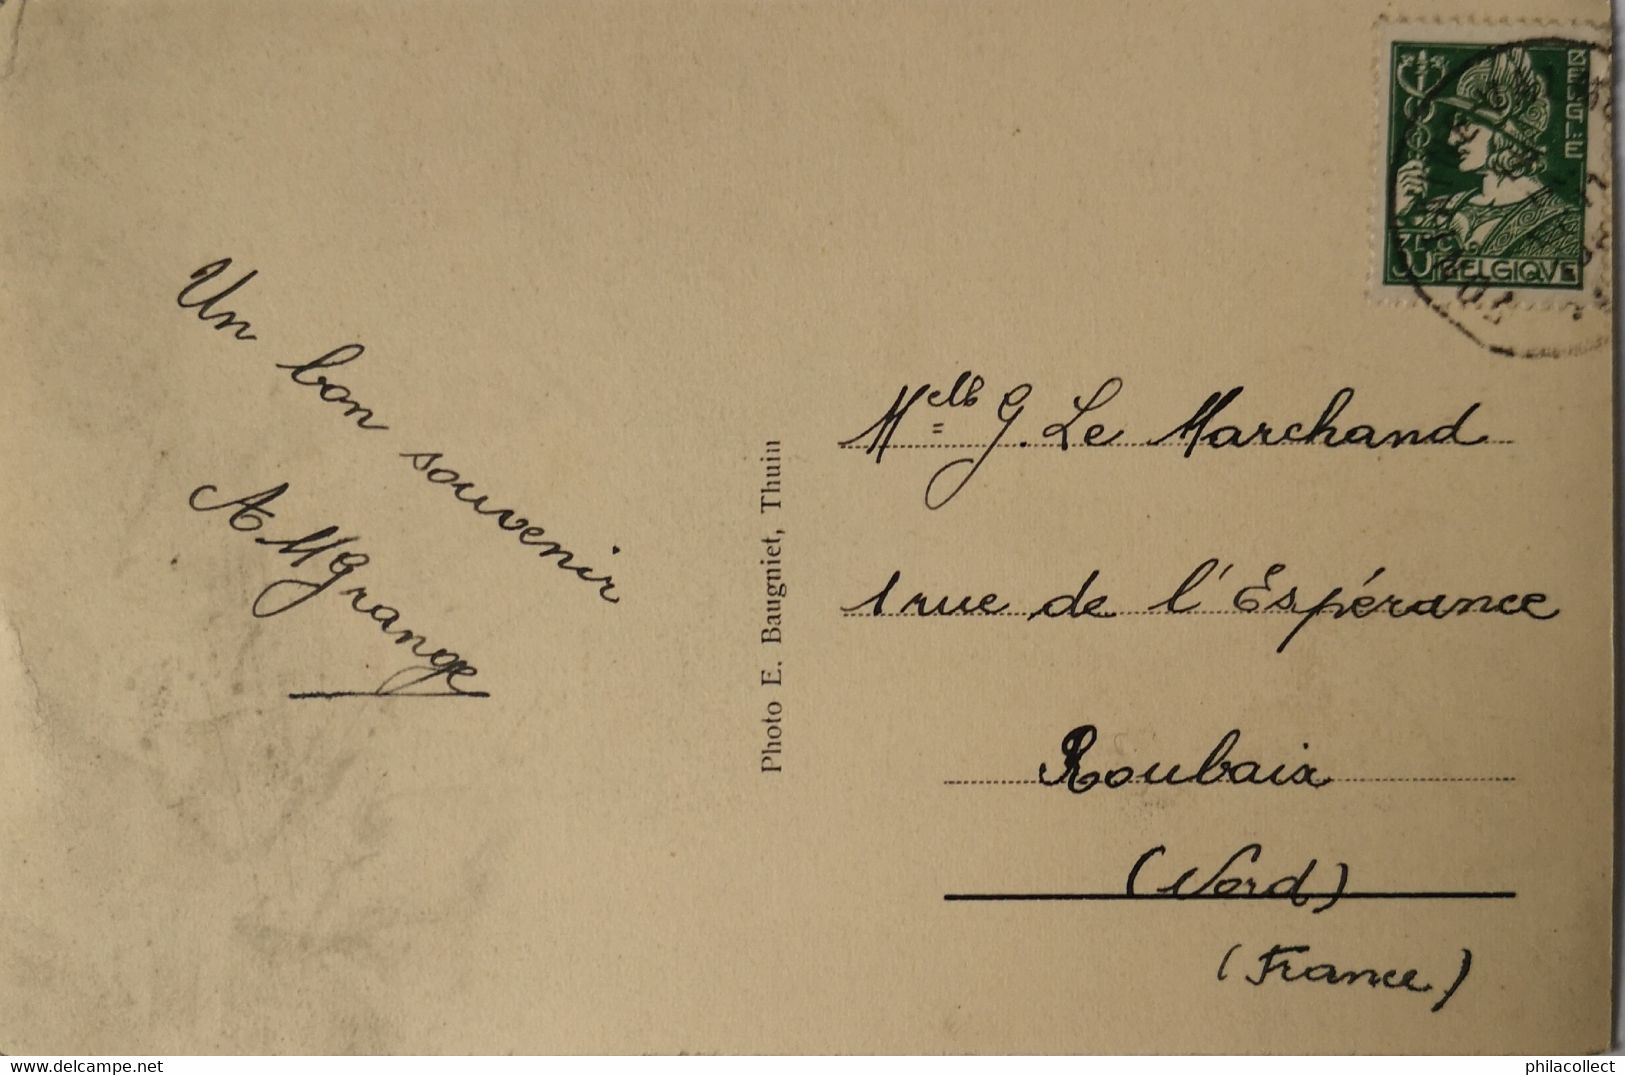 Un bon souvenir
A.MGrange
Photo E. Baugniet, Thuin
BELGIE
35c
BELGIQVE
Melle G. Le Marchand
1 rue de l'Espérance
Roubaix
(Nord)
(France)
philacollect